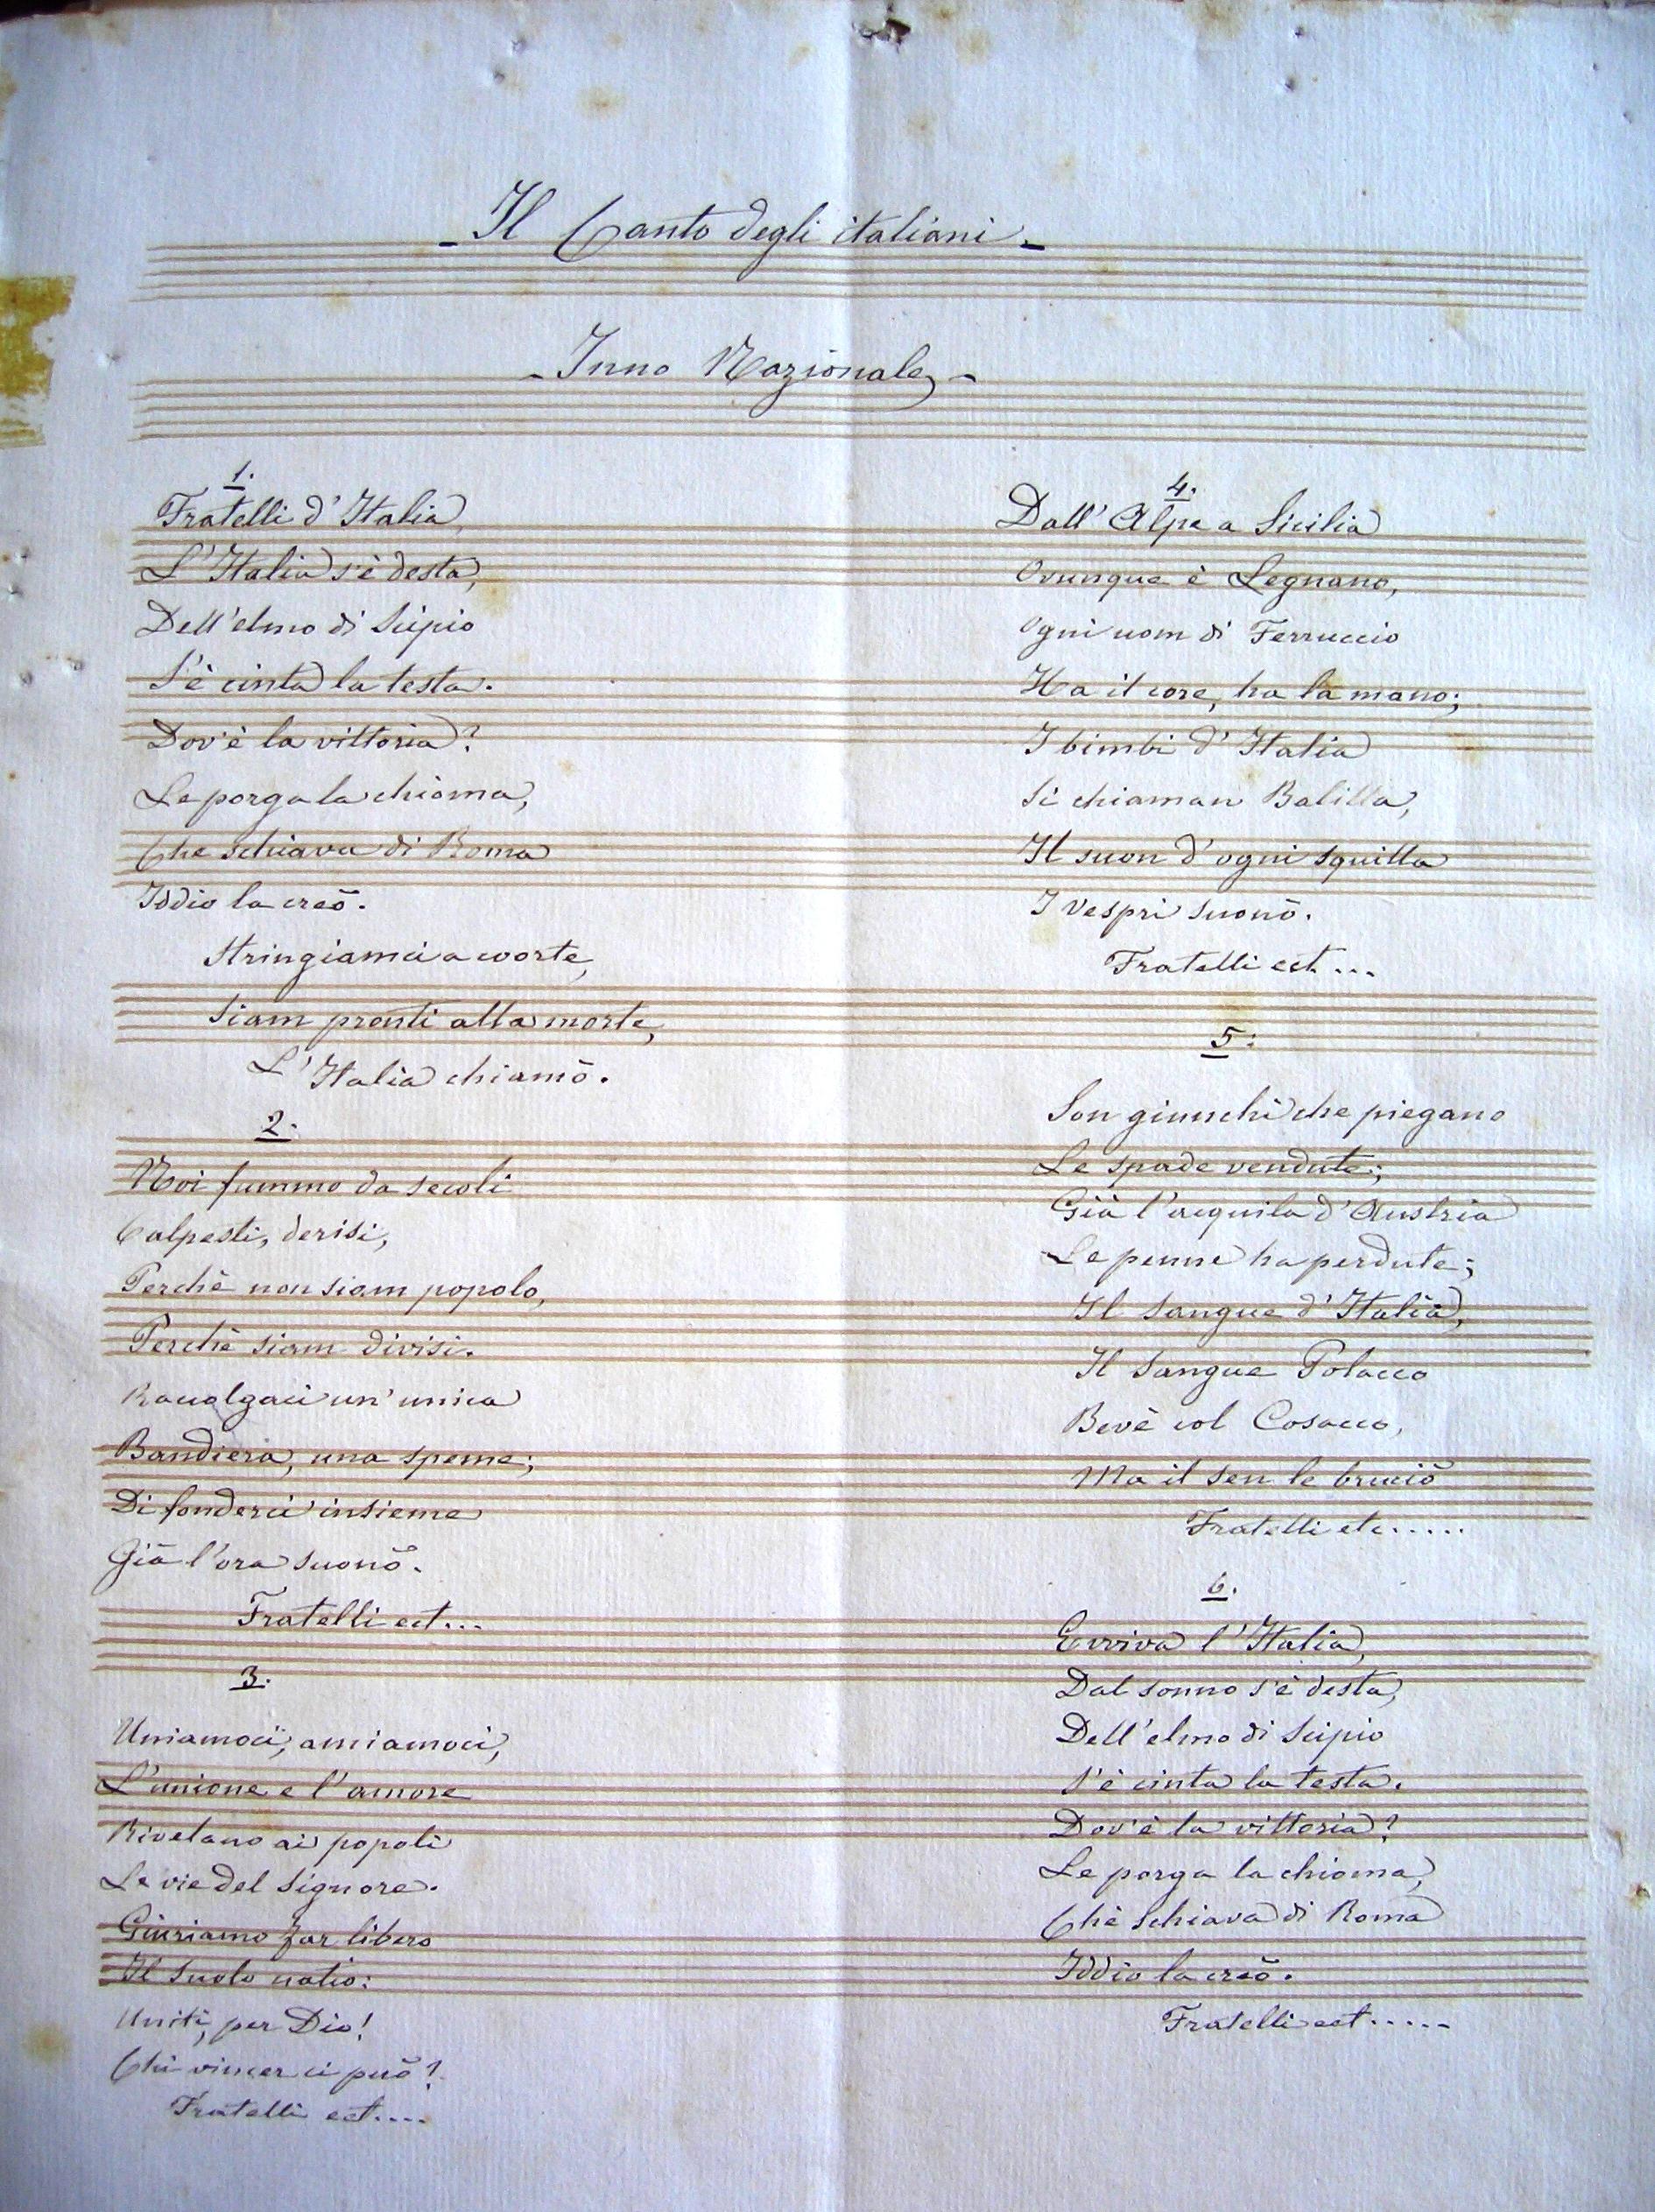 Il Canto degli italiani
Inno Nazionale
1.
Fratelli d'Italia,
L'Italia s'è desta,
Dell'elmo di Scipio
S'è cinta la testa.
Dov'è la vittoria?
Le porga la chioma,
Che schiava di Roma
Iddio la creò.
Stringiamci a coorte,
Siam pronti alla morte,
L'Italia chiamò.
2.
Noi fummo da secoli
Calpesti, derisi,
Perchè non siam popolo,
Perchè siam divisi.
Raccolgaci un'unica
Bandiera, una speme;
Di fonderci insieme
Già l'ora suonò.
Fratelli ect...
3.
Uniamoci, amiamoci,
L'unione e l'amore
Rivelano ai popoli
Le vie del Signore.
Giuriamo far libero
Il suolo natio:
Uniti, per Dio!
Chi vincer ci può?
Fratelli ect....
4.
Dall'Alpe a Sicilia
Ovunque è Legnano,
Ogni uom di Ferruccio
Ha il core, ha la mano;
I bimbi d'Italia
Si chiaman Balilla,
Il suon d'ogni squilla
I Vespri suonò.
Fratelli ect...
5.
Son giunchi che piegano
Le spade vendute;
Già l'acquila d'Austria
Le penne ha perdute;
Il sangue d'Italia,
Il sangue Polacco
Bevè col Cosacco,
Ma il sen le bruciò
Fratelli etc.....
6.
Evviva l'Italia,
Dal sonno s'è desta,
Dell'elmo di Scipio
S'è cinta la testa.
Dov'è la vittoria?
Le porga la chioma,
Chè schiava di Roma
Iddio la creò.
Fratelli ect.....